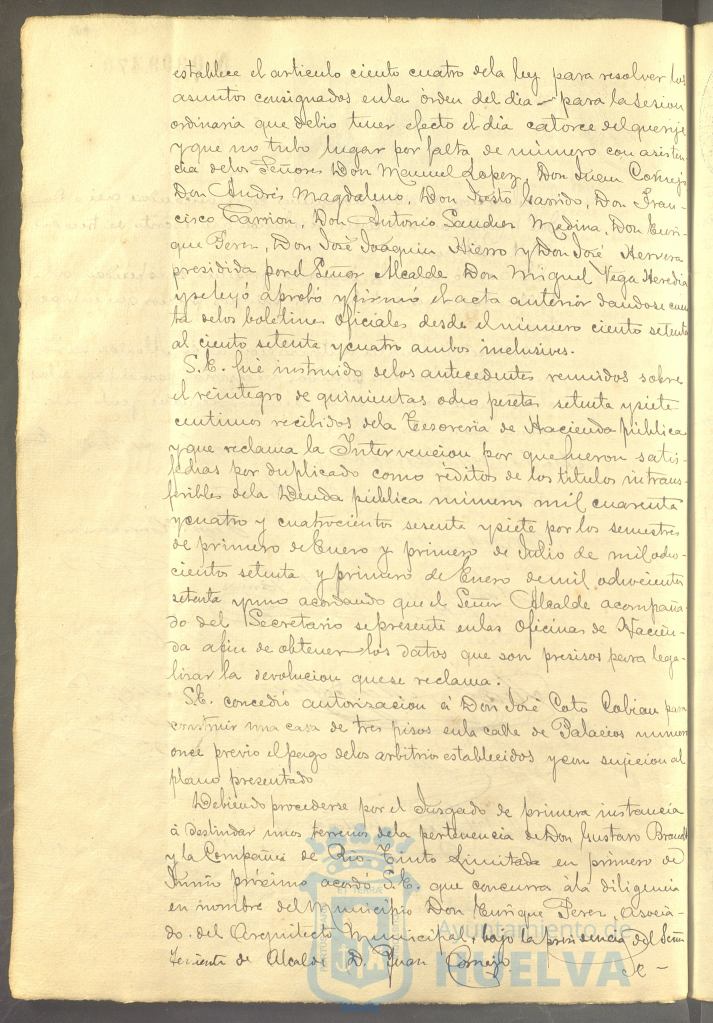 establece el articulo ciento cuatro dela ley para resolver los
asuntos consignados enla órden del dia para la sesion
ordinaria que debio tener efecto el dia catorce del que rije
y que no tubo lugar por falta de número con asisten-
cia delos Señores Don Manuel Lopez, Don Juan Cornejo
Don Andrés Magdaleno, Don Justo Garrido, Don Fran-
cisco Carrion, Don Antonio Sanchez Medina, Don Enri-
que Perez, Don José Joaquin Hierro y Don José Herrera
presidida por el Señor Alcalde Don Miguel Vega Heredia
y se leyó aprobó y firmó el acta anterior dandose cuen-
ta delos boletines oficiales desde el número ciento setenta
al ciento setenta y cuatro ambos inclusives.
S.E. fué instruido delos antecedentes reunidos sobre
el reintegro de quinientas ocho pesetas setenta y siete
centimos recibidos dela Tesoreria de Hacienda pública
y que reclama la Intervencion por que fueron satis-
fechas por duplicado como réditos de los titulos intrans-
feribles dela Deuda pública números mil cuarenta
y cuatro y cuatrocientos sesenta y siete por los semestres
de primero de Enero y primero de Julio de mil ocho-
cientos setenta y primero de Enero de mil ochocientos
setenta y uno acordando que el Señor Alcalde acompaña-
do del Secretario se presente enlas Oficinas de Hacien-
da afin de obtener los datos que son presisos para lega-
lizar la devolucion que se reclama.
S.E. concedió autorizacion á Don José Coto Cobian para
construir una casa de tres pisos enla calle de Palacios numero
once previo el pago delos arbitrios establecidos y con sujecion al
plano presentado
Debiendo procederse por el Juzgado de primera instancia
á deslindar unos terrenos dela pertenencia de Don Gustavo Brandt
y la Compañia de Rio Tinto Limitada en primero de
Junio próximo acordó S.E. que concurra á la diligencia
en nombre del Municipio Don Enrique Perez, asocia-
do del Arquitecto Municipal, bajo la presidencia del Señor
Teniente de Alcalde D. Juan Cornejo.
Ayuntamiento de
HUELVA